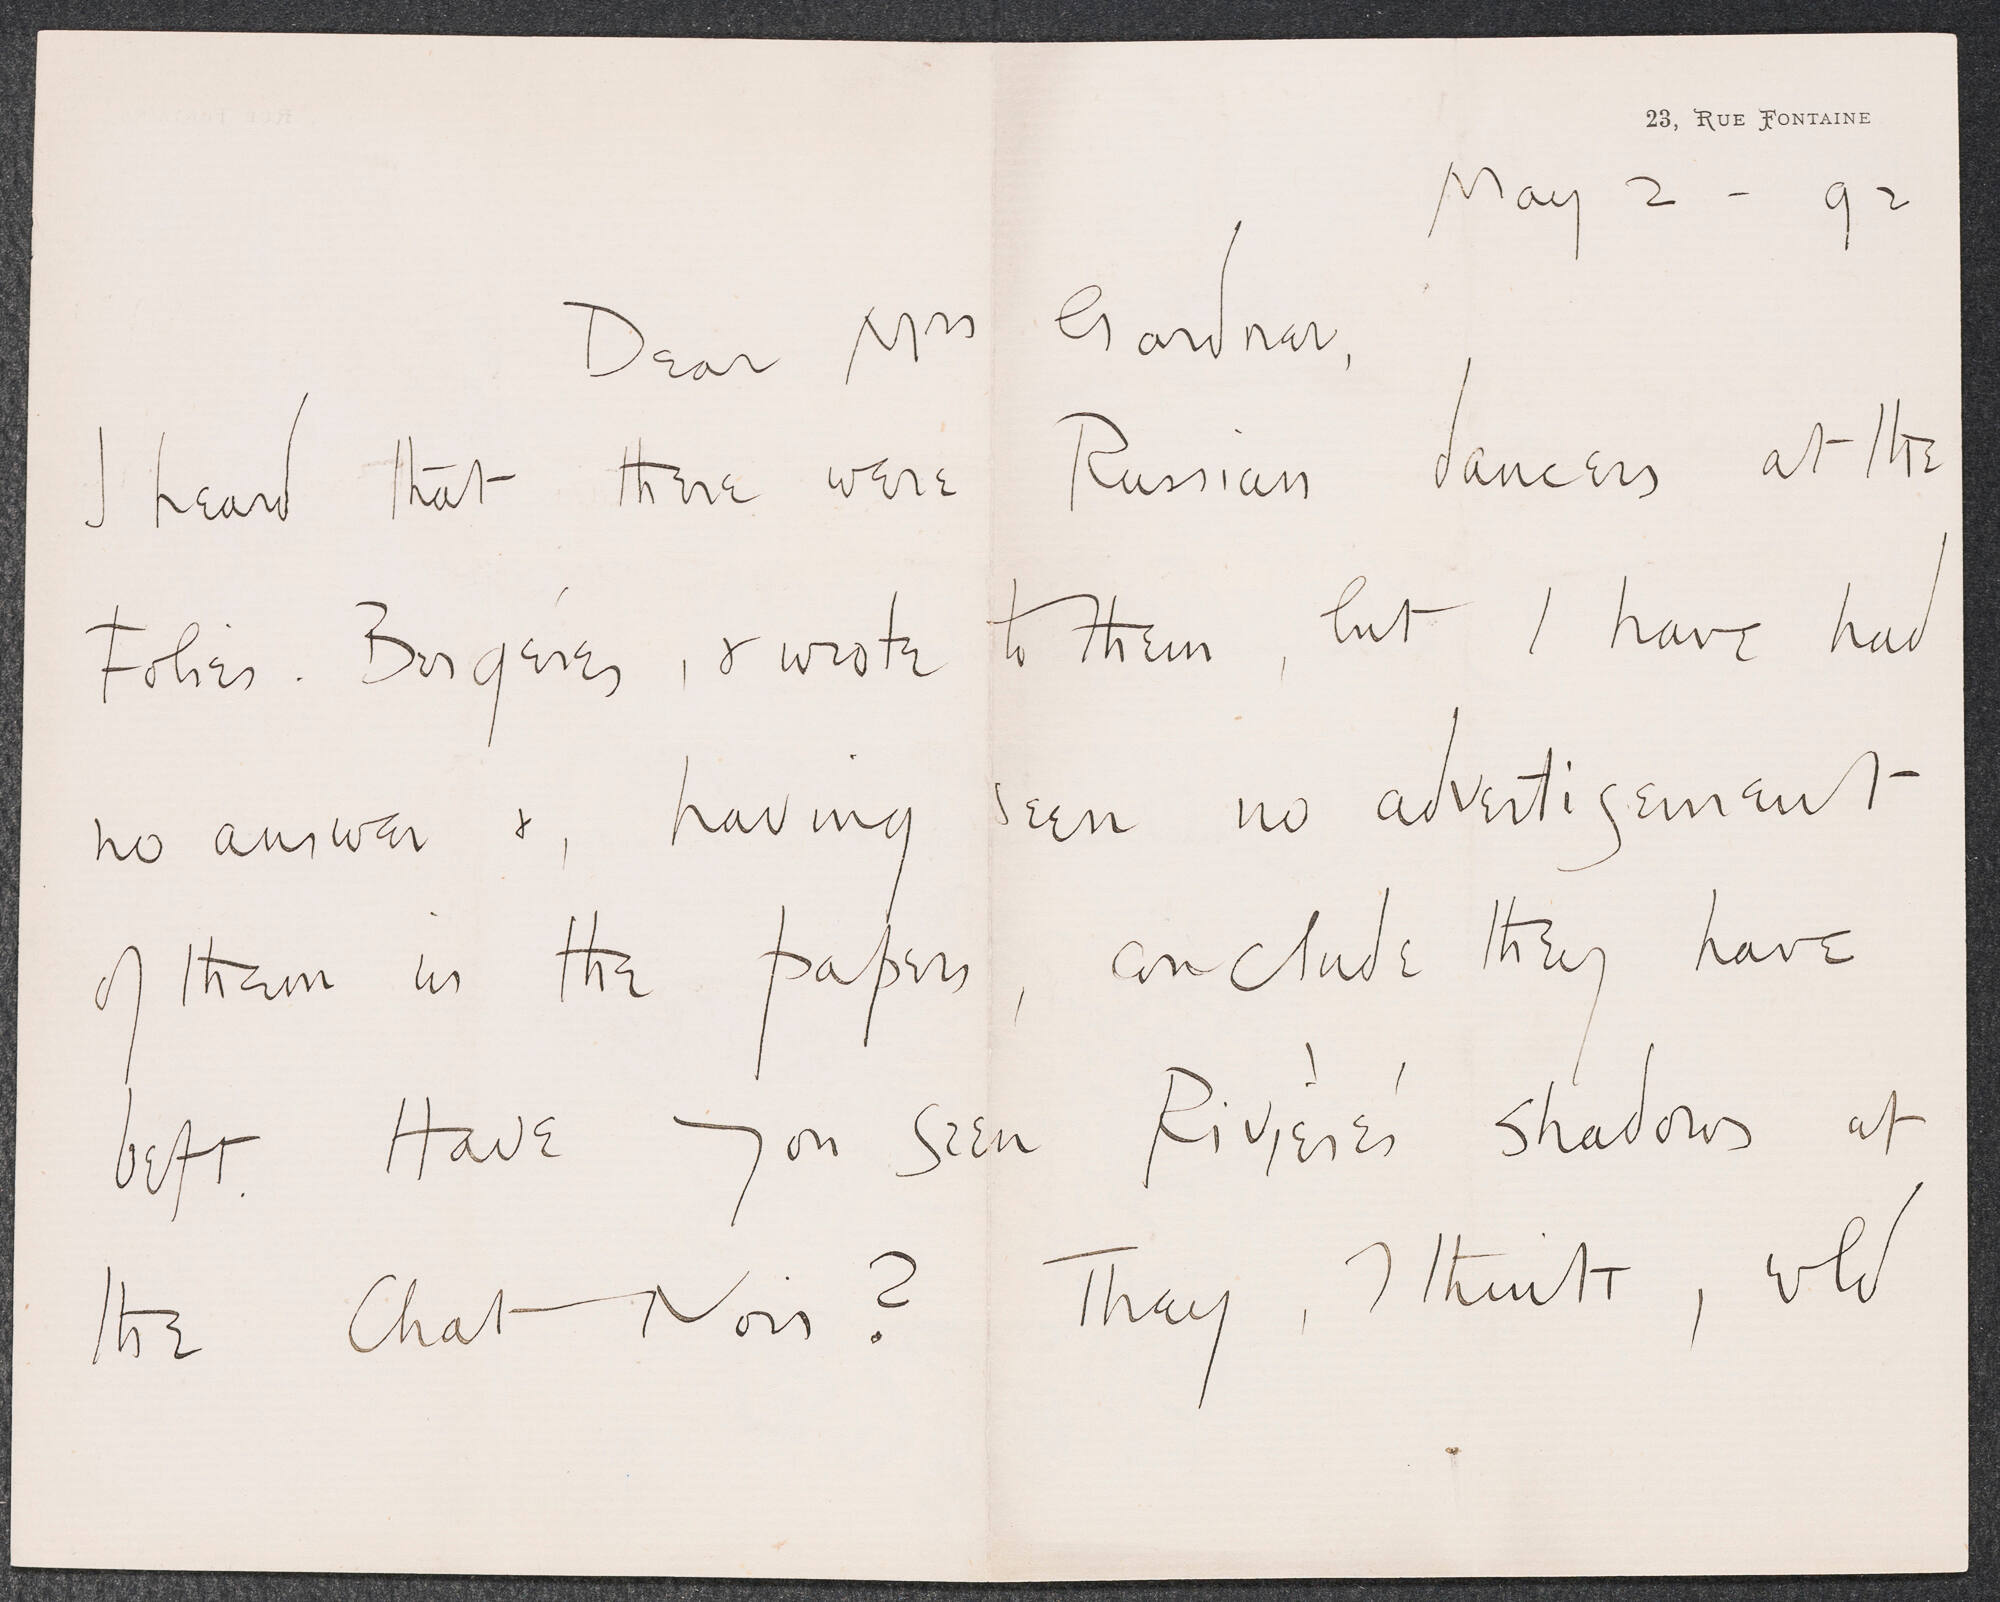 23, Rue Fontaine
May 2 - 92
Dear Mrs Gardner,
I heard that there were Russian dancers at the
Folies. Bergéres, & wrote to them, but I have had
no answer &, having seen no advertisement
of them in the papers, conclude they have
left. Have you seen Rivière's shadows at
the Chat Noir? They, I think, wld